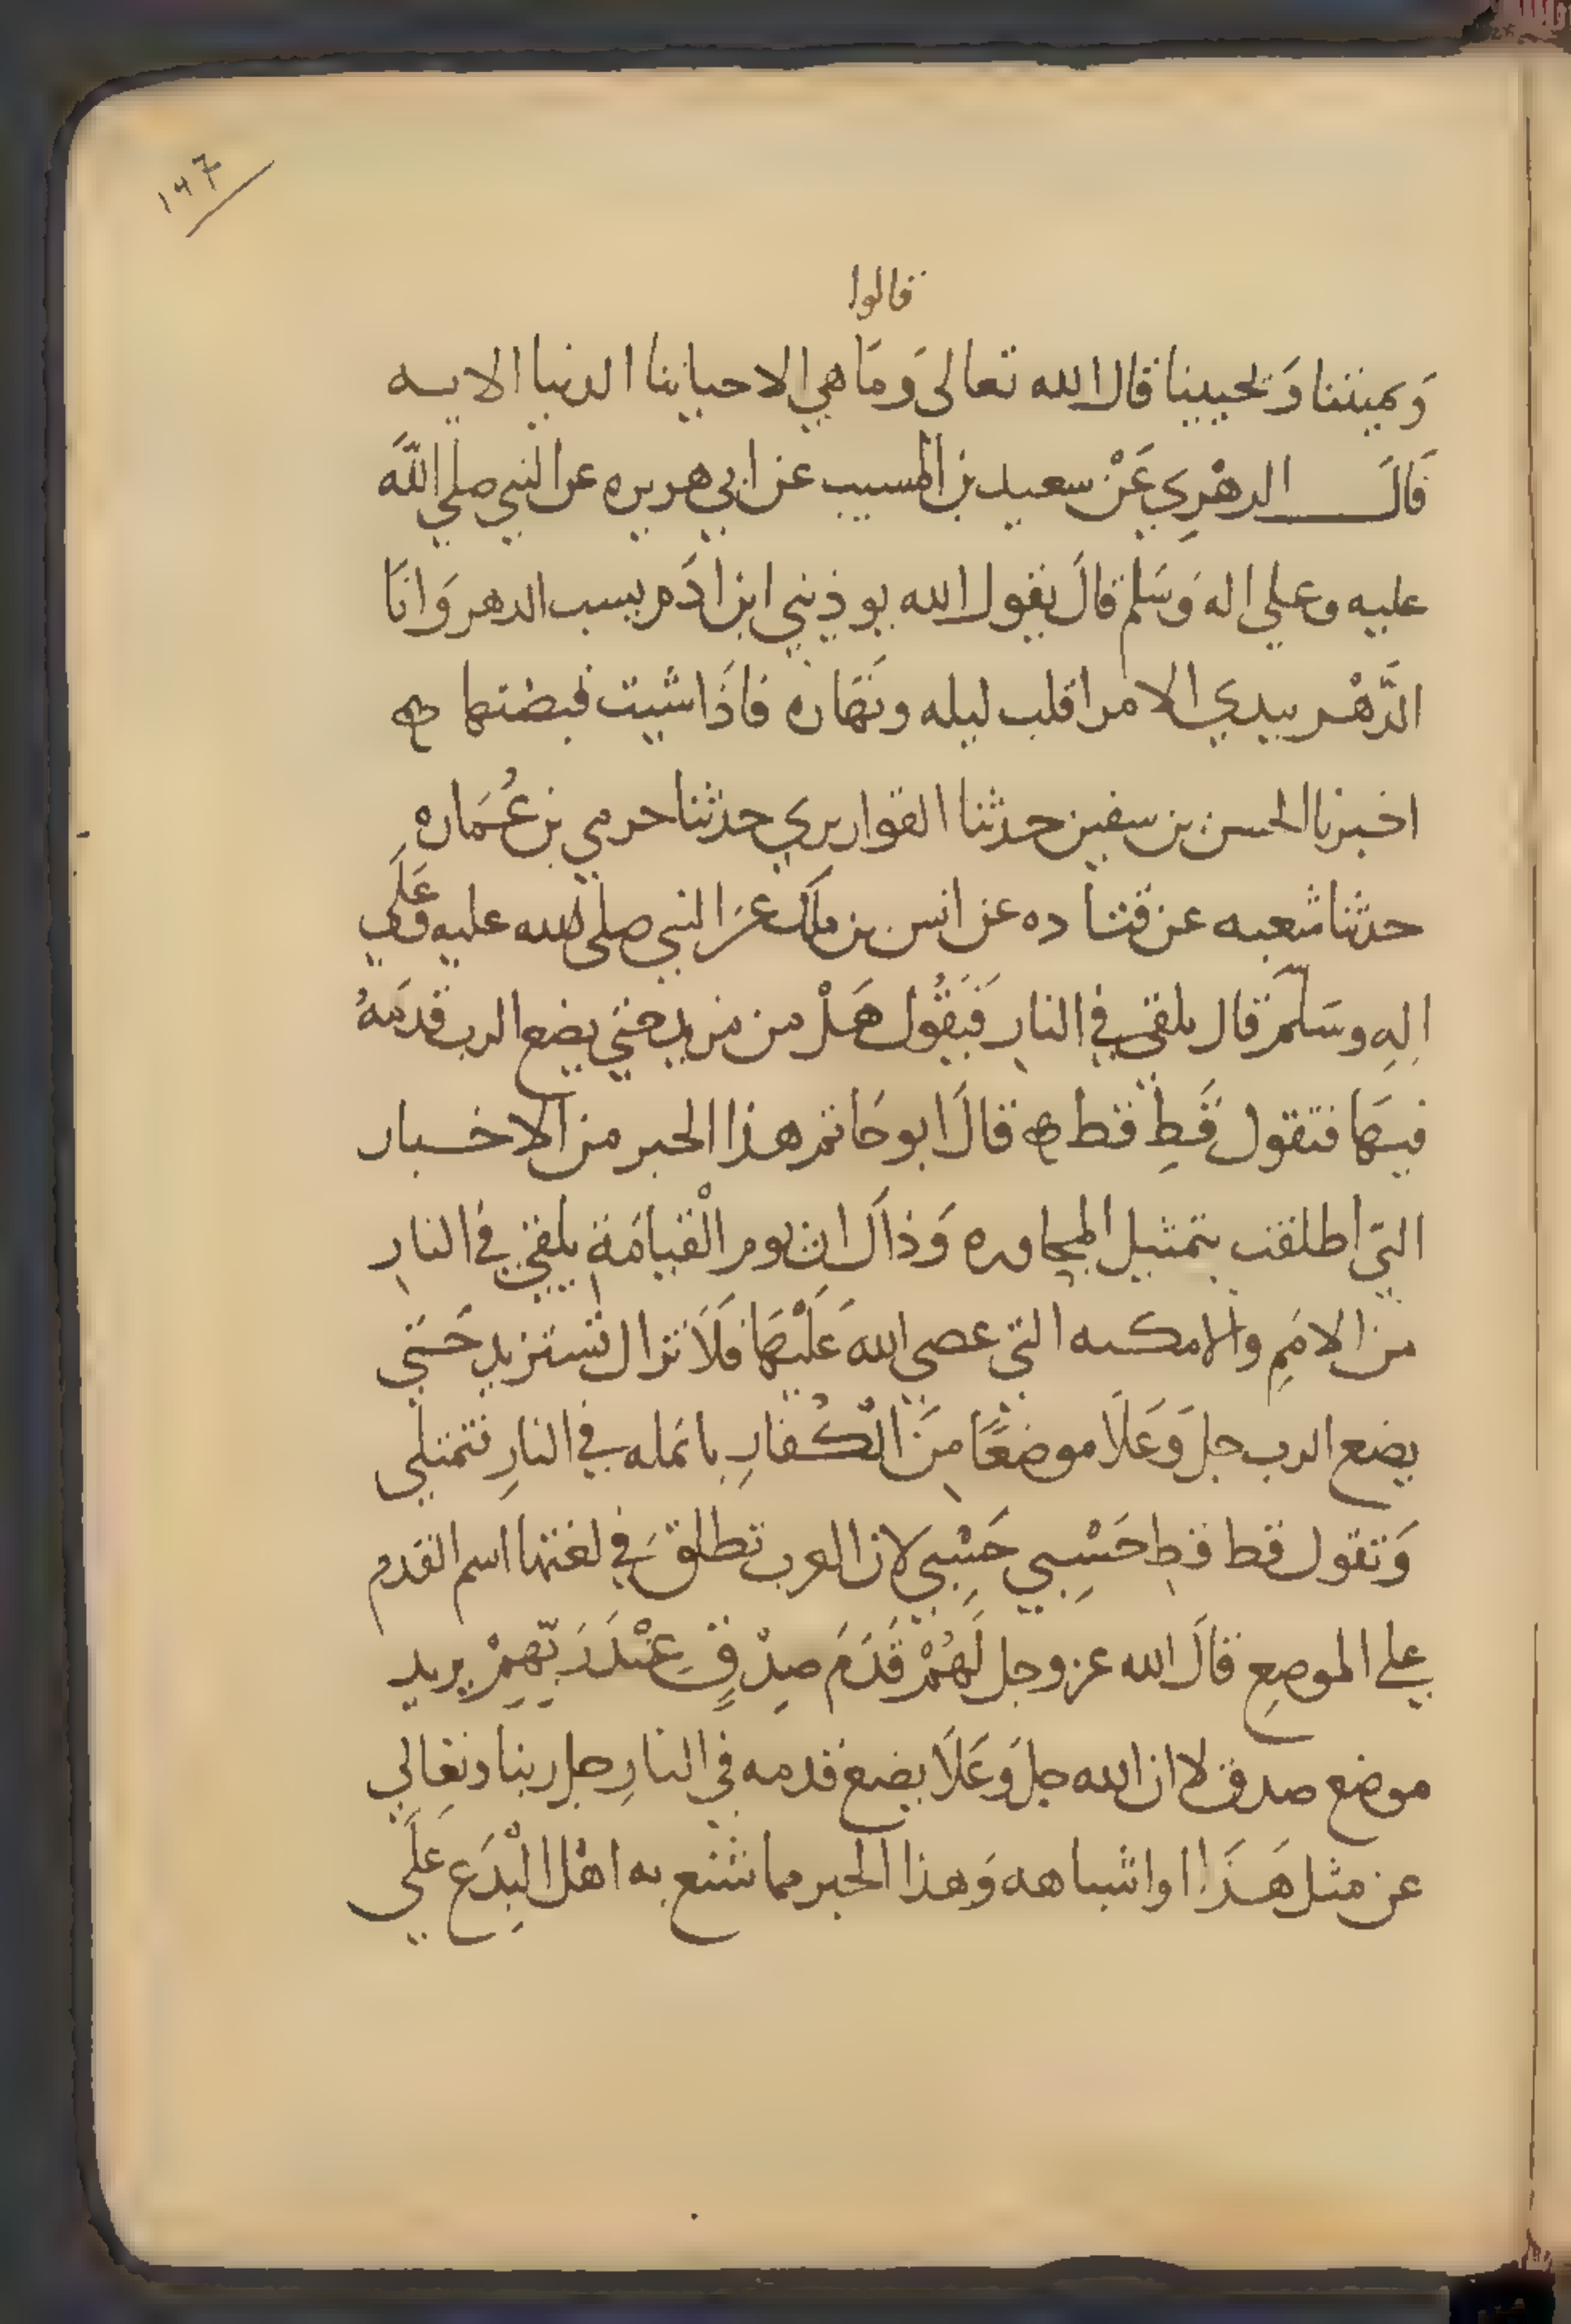 ١٩٧
قالوا
وَيميتنا وَيحيينا قال الله تعالى وَمَا هي الا حياتنا الدنيا الايه
قَالَ الزهْرِي عَنْ سعيد بن المسيب عن ابي هريره عن النبي صلي اللَّه
عليه وعلي اله وَسَلم قالَ يقول الله يوذيني ابن ادَم يسب الدهر وَانَا
الدَّهْر بيدي الامر اقلب ليله ونَهَاره فاذَا شيت قبضتهما ه
اخبرنا الحسن بن سفين حدثنا القواريري حدثنا حرمي بن عُمَاره
حدثنا شعبه عن قتاده عن انس بن ملك عن النبي صلى الله عليه وعَلَي
اِلهِ وسَلمَ قال يلقي في النارِ فَيَقُول هَلْ من مزيد حتي يضع الرب قدَمَهُ
فيهَا فتقول قَطِ قط ه قالَ ابو حَاتم هذا الخبر من الاخبار
التي اطلقت بتمثيل المجاوره وَذاكَ ان يوم الْقيامَةِ يلقي في النارِ
من الامَمِ والامكنه التي عصي الله عَلَيْهَا فَلَا تزال تستزيد حَتي
يضع الرب جل وَعَلَا موضعًا مِنَ الكُفارِ بانمله في النارِ فتمتلي
وَتقول قط قطِ حَسْبِي حَسْبِي لان العرب تطلق في لغتها اسم القدم
علي الموضعِ قالَ الله عز وجل لَهُمْ قَدَمَ صِدْقٍ عِنْدَ رَبِّهِمْ يريد
موضع صدق لا ان الله جل وَعَلَا يضع قدمه في النارِ جل ربنا وتعَالي
عن مثل هَذَا او اشباهه وَهذا الخبر مما شنع به اهْل الْبِدَع عَلَي